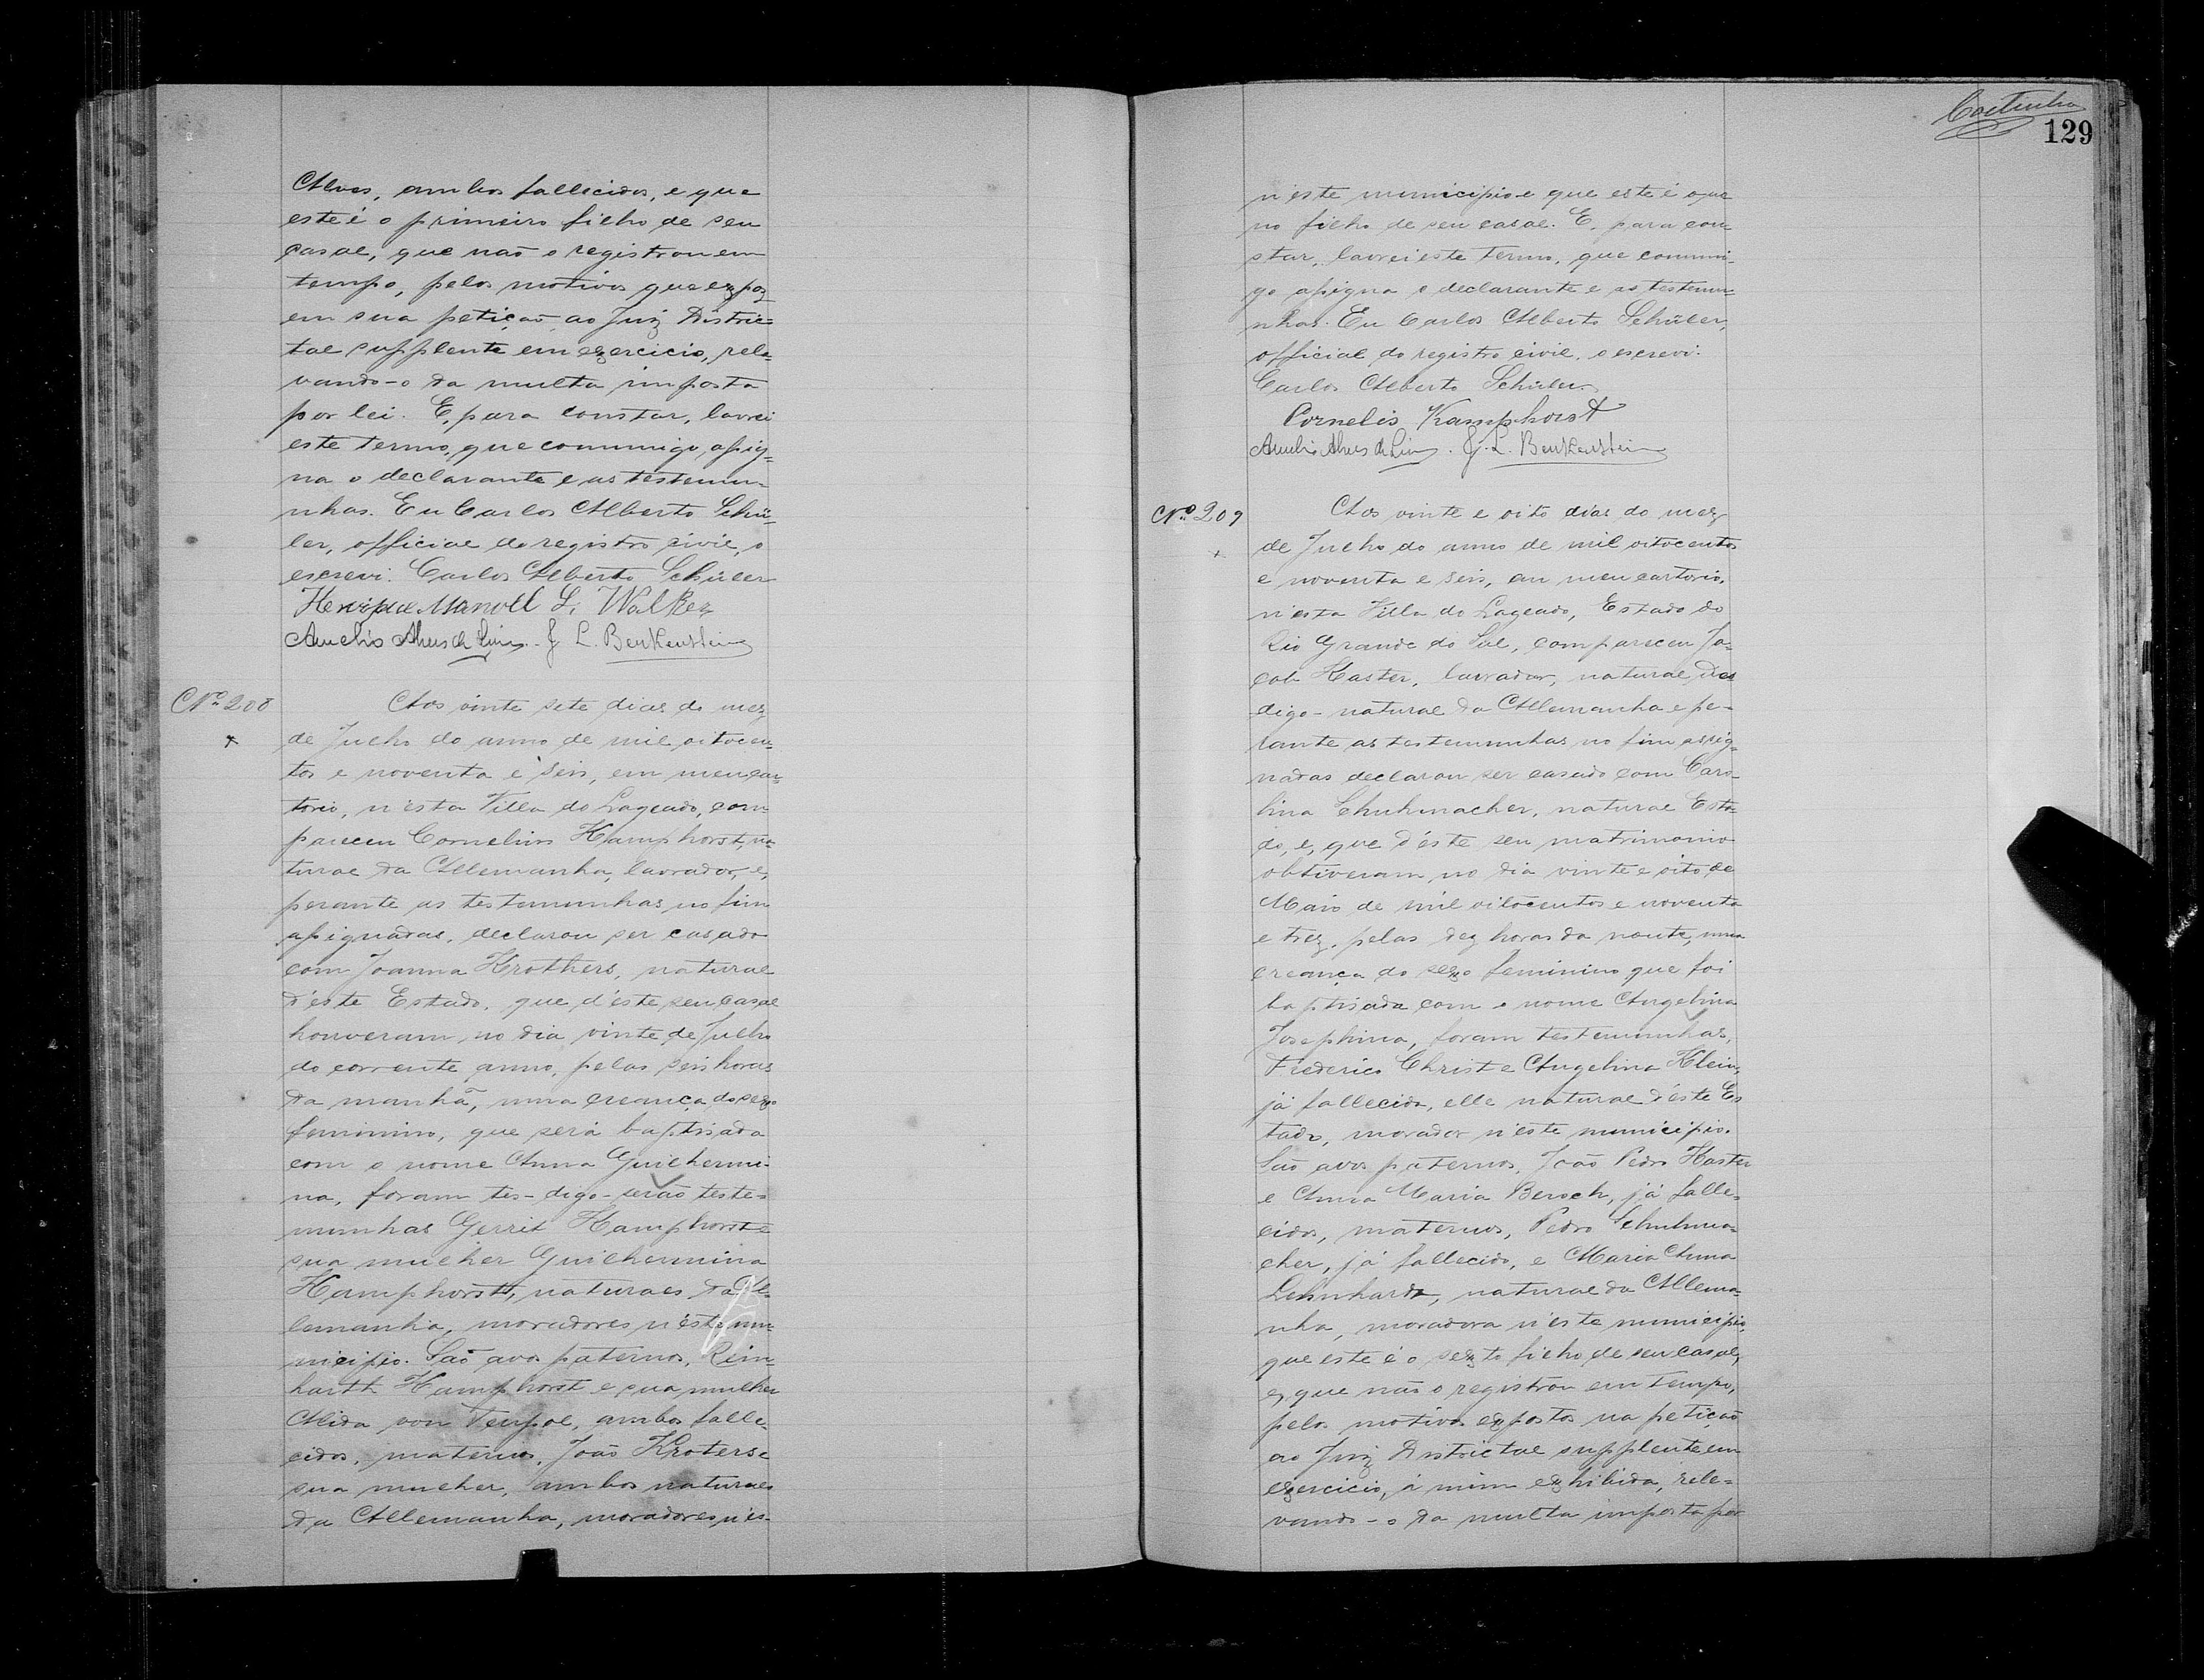 Alves, ambos fallecidos, e que
este é o primeiro filho de seu
casal, que não o registrou em
tempo, pelos motivos que expoz
em sua petição ao Juiz Distric-
tal supplente em exercicio, rele-
vando-o da multa imposta
por lei. E, para constar, lavrei
este termo, que commigo, assig-
na o declarante e as testemu-
nhas. Eu Carlos Alberto Schü-
ler, official do registro civil, o
escrevi. Carlos Alberto Schüler
Henrique Manoel L. Walker
Amelio Alves de Lima. J. L. Berkenstein
No. 208
Aos vinte sete dias do mez
de Julho do anno de mil oitocen-
tos e noventa e seis, em meu car-
torio, n'esta Villa do Lageado, com-
pareceu Cornelius Kamphorst, na-
tural da Allemanha, lavrador, e,
perante as testemunhas no fim
assignadas, declarou ser casado
com Joanna Krothers, natural
d'este Estado, que d'este seu casal
houveram, no dia vinte de Julho
do corrente anno, pelas seis horas
da manhã, uma creança do sexo
feminino, que será baptisada
com o nome Anna Guilhermi-
na, foram tes-digo-serão teste-
munhas Gerrit Kamphorst e
sua mulher Guilhermina
Kamphorst, naturaes da Al-
lemanha, moradores n'este mu-
nicipio. São avos paternos, Rein-
harth Kamphorst e sua mulher
Alida von Tenpol, ambos falle-
cidos, maternos, João Kroters e
sua mulher, ambos naturaes
da Allemanha, moradores n'es-
Coitinho
129
n'este municipio e que este é o
no filho de seu casal. E, para con-
star, lavrei este termo, que commi-
go assigna o declarante e as testemu-
nhas. Eu Carlos Alberto Schüler,
official do registro civil, o escrevi.
Carlos Alberto Schüler
Cornelis Kamphorst
Amelio Alves de Lima. J. L. Berkenstein
No. 209
Aos vinte e oito dias do mez
de Julho do anno de mil oitocentos
e noventa e seis, em meu cartorio,
n'esta Villa do Lageado, Estado do
Rio Grande do Sul, compareceu Ja-
cob Haster, lavrador, natural des
digo-natural da Allemanha e pe-
rante as testemunhas no fim assig-
nadas declarou ser casado com Caro-
lina Chuhmacher, natural Esta-
do, e, que d'este seu matrimonio
obtiveram no dia vinte e oito de
Maio de mil oitocentos e noventa
e trez, pelas dez horas da noute, uma
creança do sexo feminino que foi
baptisada com o nome Angelina
Josephina, foram testemunhas,
Frederico Christ e Angelina Klein,
já fallecida, elle natural d'este Es
tado, morador n'este municipio.
São avos paternos, João Pedro Haster
e Anna Maria Beroch, já falle-
cidos, maternos, Pedro Schuhma-
cher, já fallecido, e Maria Anna
Lehnhardt, natural da Allema-
nha, moradora n'este municipio,
que este é o sexto filho de seu casal,
e, que não o registrou em tempo,
pelos motivos expostos na petição
ao Juiz Districtal supplente em
exercicio, á mim exhibida, rele-
vando-o da multa imposta por